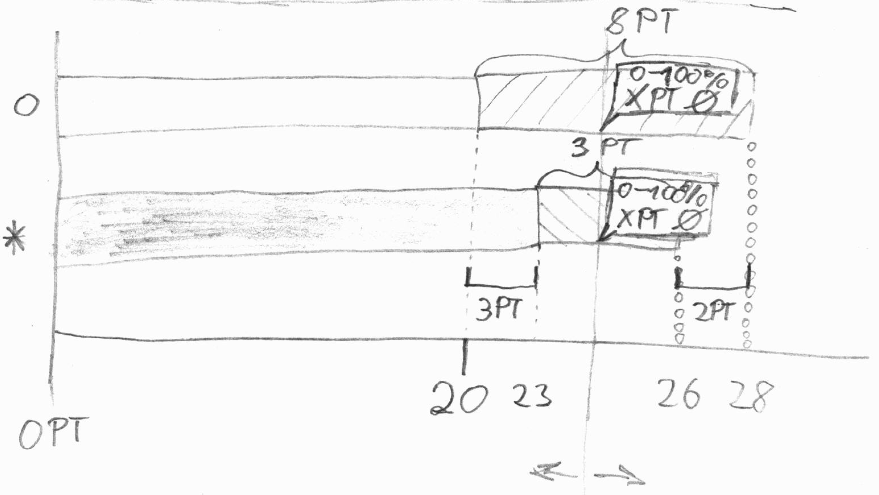 8 PT
O
0-100%
XPT Ø
3 PT
*
0-100%
XPT Ø
3PT
2PT
20
23
26
28
0PT